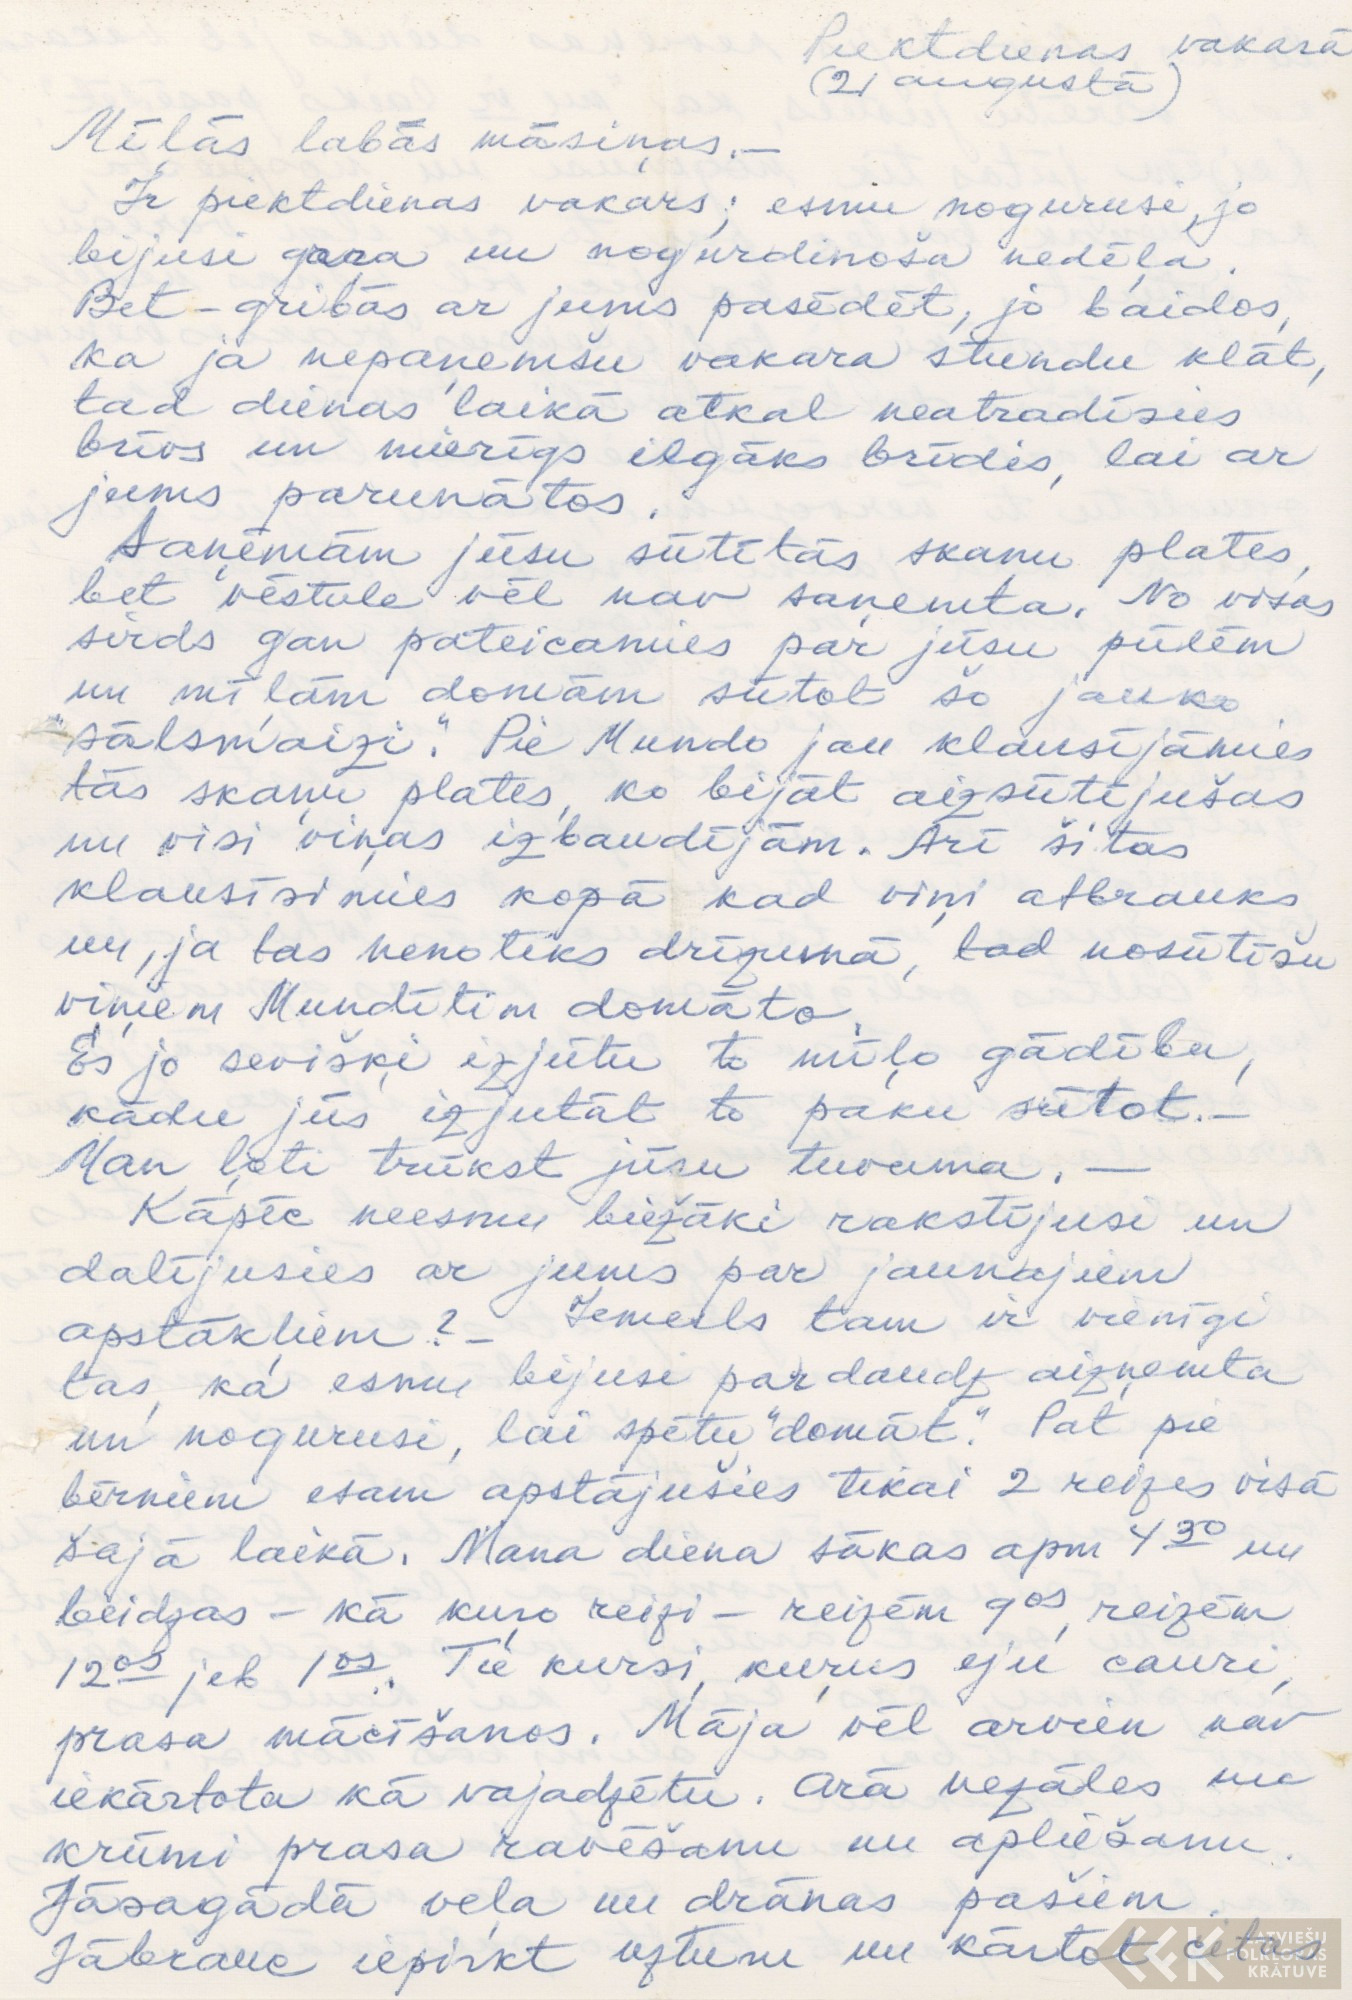 Piektdienas vakarā
(21 augustā)
Mīļās labās māsiņas.—
Ir piektdienas vakars; esmu nogurusi, jo
bijusi gara un nogurdinoša nedēļa.
Bet – gribās ar jums pasēdēt, jo baidos,
ka ja nepaņemšu vakara stundu klāt,
tad dienas laikā atkal neatradīsies
brīvs un mierīgs ilgāks brīdis, lai ar
jums parunātos.
Saņēmām jūsu sūtītās skaņu plates,
bet vēstule vēl nav saņemta. No visas
sirds gan pateicamies par jūsu pūlēm
un mīļām domām sūtot šo jauko
"sālsmaizi". Pie Mundo jau klausījāmies
tās skaņu plates, ko bijāt aizsūtījušas
un visi viņas izbaudījām. Arī šitas
klausīsimies kopā kad viņi atbrauks
un, ja tas nenotiks drīzumā, tad nosūtīšu
viņiem Mundītim domāto.
Es jo sevišķi izjūtu to mīļo gādību,
kādu jūs izjutāt to paku sūtot.—
Man ļoti trūkst jūsu tuvuma. —
Kāpēc neesmu biežāki rakstījusi un
dalījusies ar jums par jaunajiem
apstākļiem? – Iemesls tam ir vienīgi
tas, ka esmu bijusi pārdaudz aizņemta
un nogurusi, lai spētu "domāt". Pat pie
bērniem esam apstājušies tikai 2 reizes visā
šajā laikā. Mana diena sākas apm 4 30 un
beidzas – kā kuŗo reizi – reizēm 9os, reizēm
12os jeb 1os. Tie kursi, kuŗus eju cauri,
prasa mācīšanos. Māja vēl arvien nav
iekārtota kā vajadzētu. Ārā nezāles un
krūmi prasa ravēšanu un apliešanu.
Jāsagādā veļa un drānas pašiem.
Jābrauc iepirkt uzturu un kārtot citas
LATVIEŠU
FOLKLORAS
KRĀTUVE